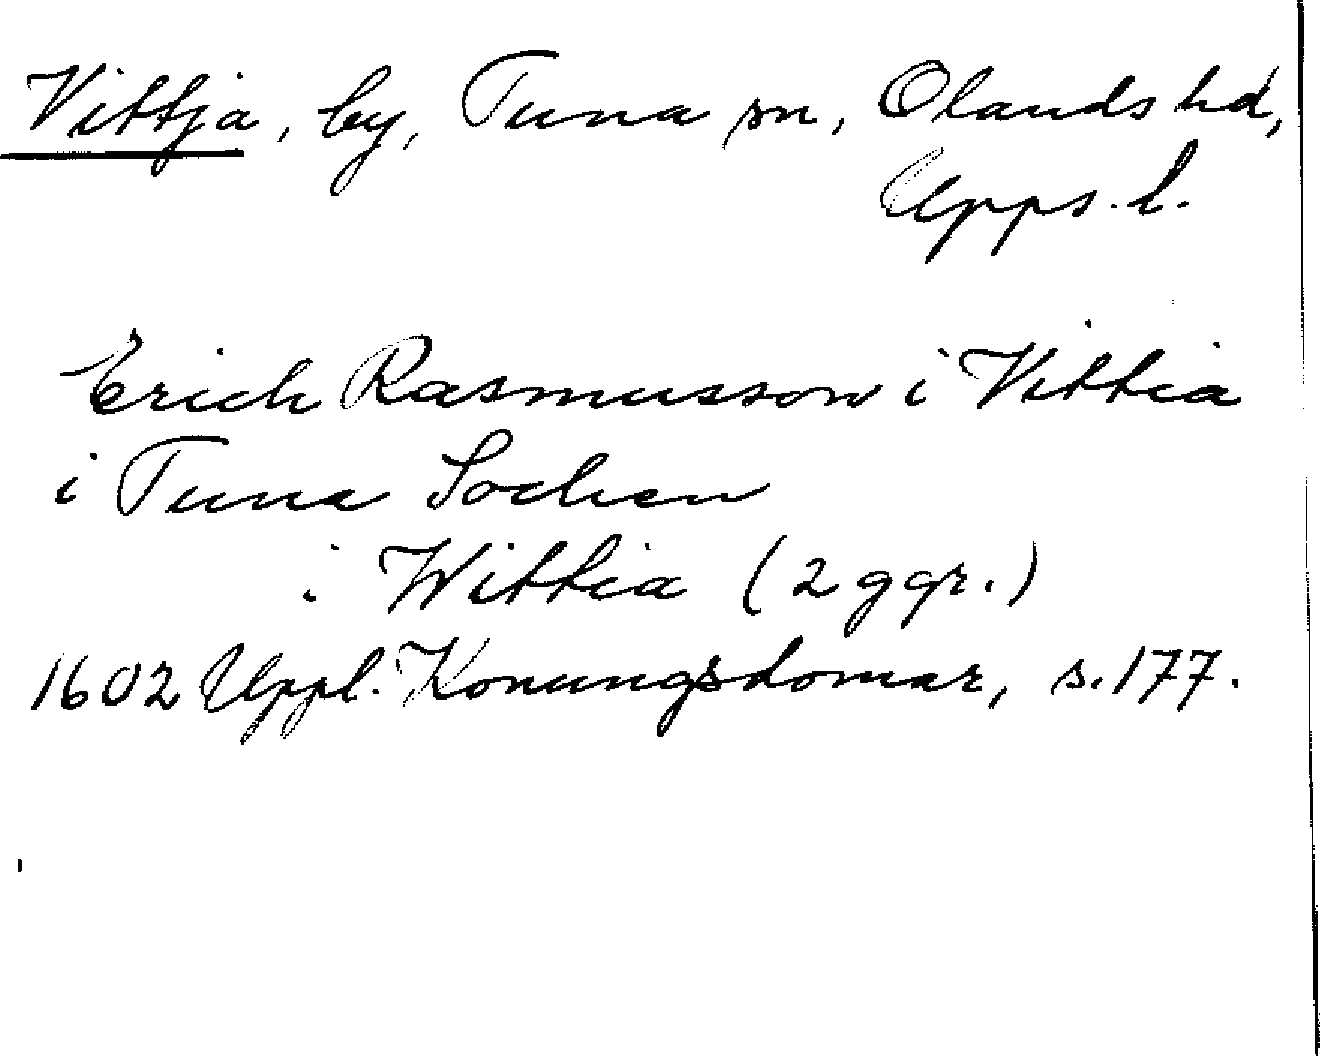 Vittja, by, Tuna sn, Olands hd,
Upps. l.
Erich Rasmusson i Vittia
i Tuna Sochen
i Wittia (2 ggr.)
1602 Uppl. Konungsdomar, s. 177.